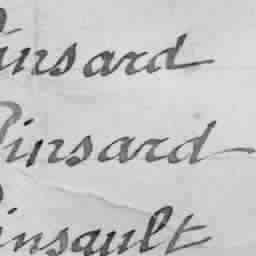 Pinsard
Pinsard
Pinsault